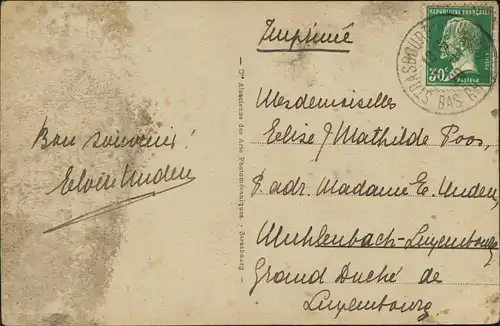 Imprimé
REPUBLIQUE FRANÇAISE
30c
POSTES
PASTEUR
STRASBOURG
BAS RHIN
Bon souvenir!
Eloi Unden
— Cie Alsacienne des Arts Photomécaniques, Strasbourg —
Mesdemoiselles
Elise & Mathilde Poos,
p. adr. Madame E. Unden,
Muhlenbach-Luxembourg
Grand Duché de
Luxembourg